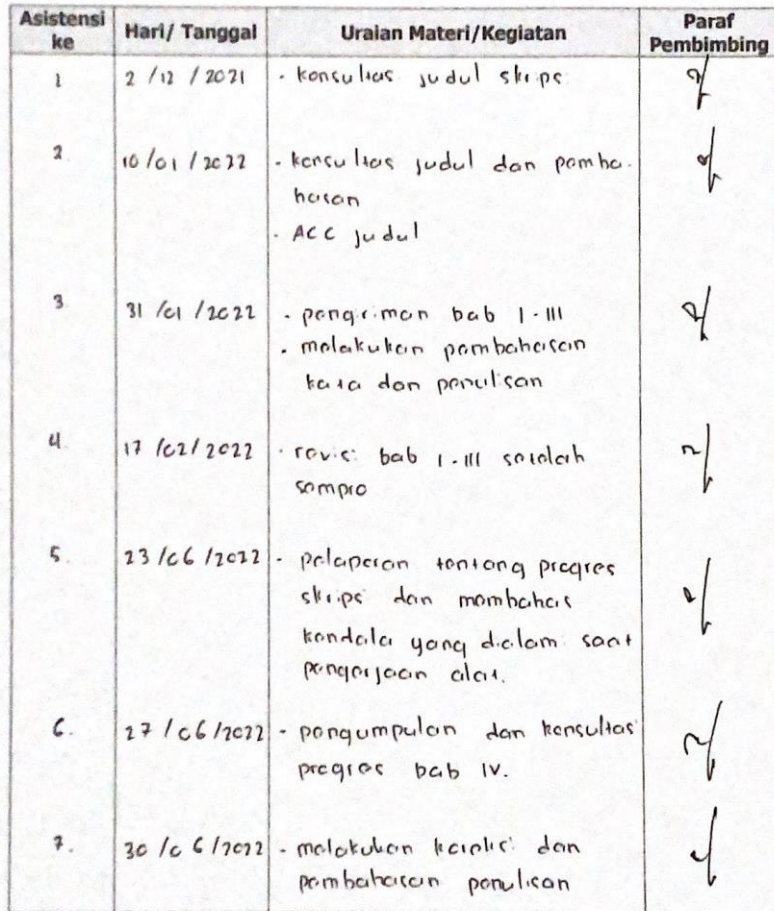 Asistensi ke | Hari/ Tanggal | Uraian Materi/Kegiatan | Paraf Pembimbing
1 | 2 /12 / 2021 | - konsultasi judul skripsi
2. | 10 /01 / 2022 | - konsultasi judul dan pemba-
hasan
- ACC judul
3. | 31 /01 /2022 | - pengiriman bab I-III
- melakukan pembahasan
kata dan penulisan
4. | 17 /02/ 2022 | - revisi bab I-III setelah
sempro
5. | 23 /06 /2022 | - pelaporan tentang progres
skripsi dan membahas
kendala yang dialami saat
pengerjaan alat.
6. | 27 /06 /2022 | - pengumpulan dan konsultasi
progres bab IV.
7. | 30 /06 /2022 | - melakukan dan
pembahasan penulisan